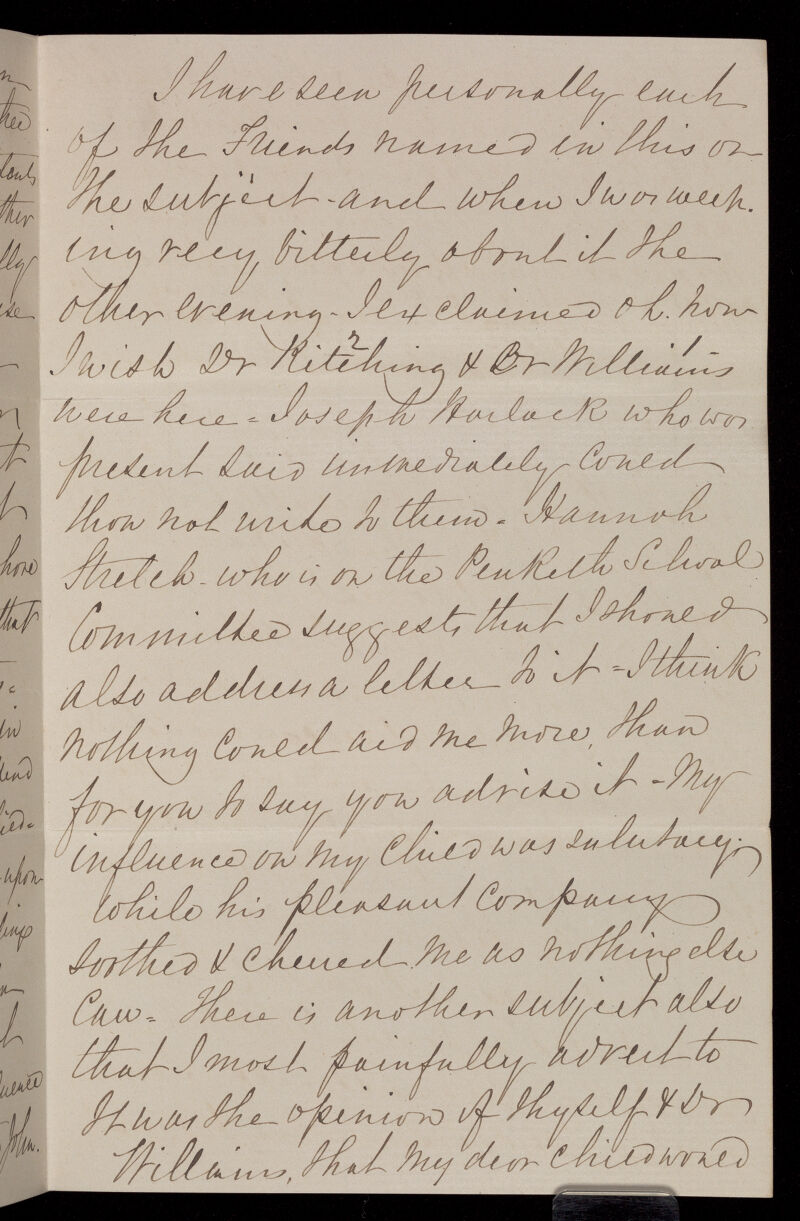 I have seen personally each
of the Friends named in this on
the subject - and when I was weep.
ing very, bitterly about it the
other evening - I exclaimed oh. how
I wish Dr Kitching & Dr Williams
2 1
were here = Joseph Harlock who was
present said immediately coued
thou not write to them = Hannah
Stretch - who is on the Penketh School
Committee suggests that I shoued
also address a letter to it = I think
nothing coued aid me more, than
for you to say you advise it - My
influence on my chied was salutary.
while his pleasant company
soothed & cheered me as nothing else
can = There is another subject also
that I most painfully advert to
It was the opinion of thyself & Dr
Williams, that my dear chied woued
n
thee
ther
lly
ise
n
t
t
have
that
in
upon
John.